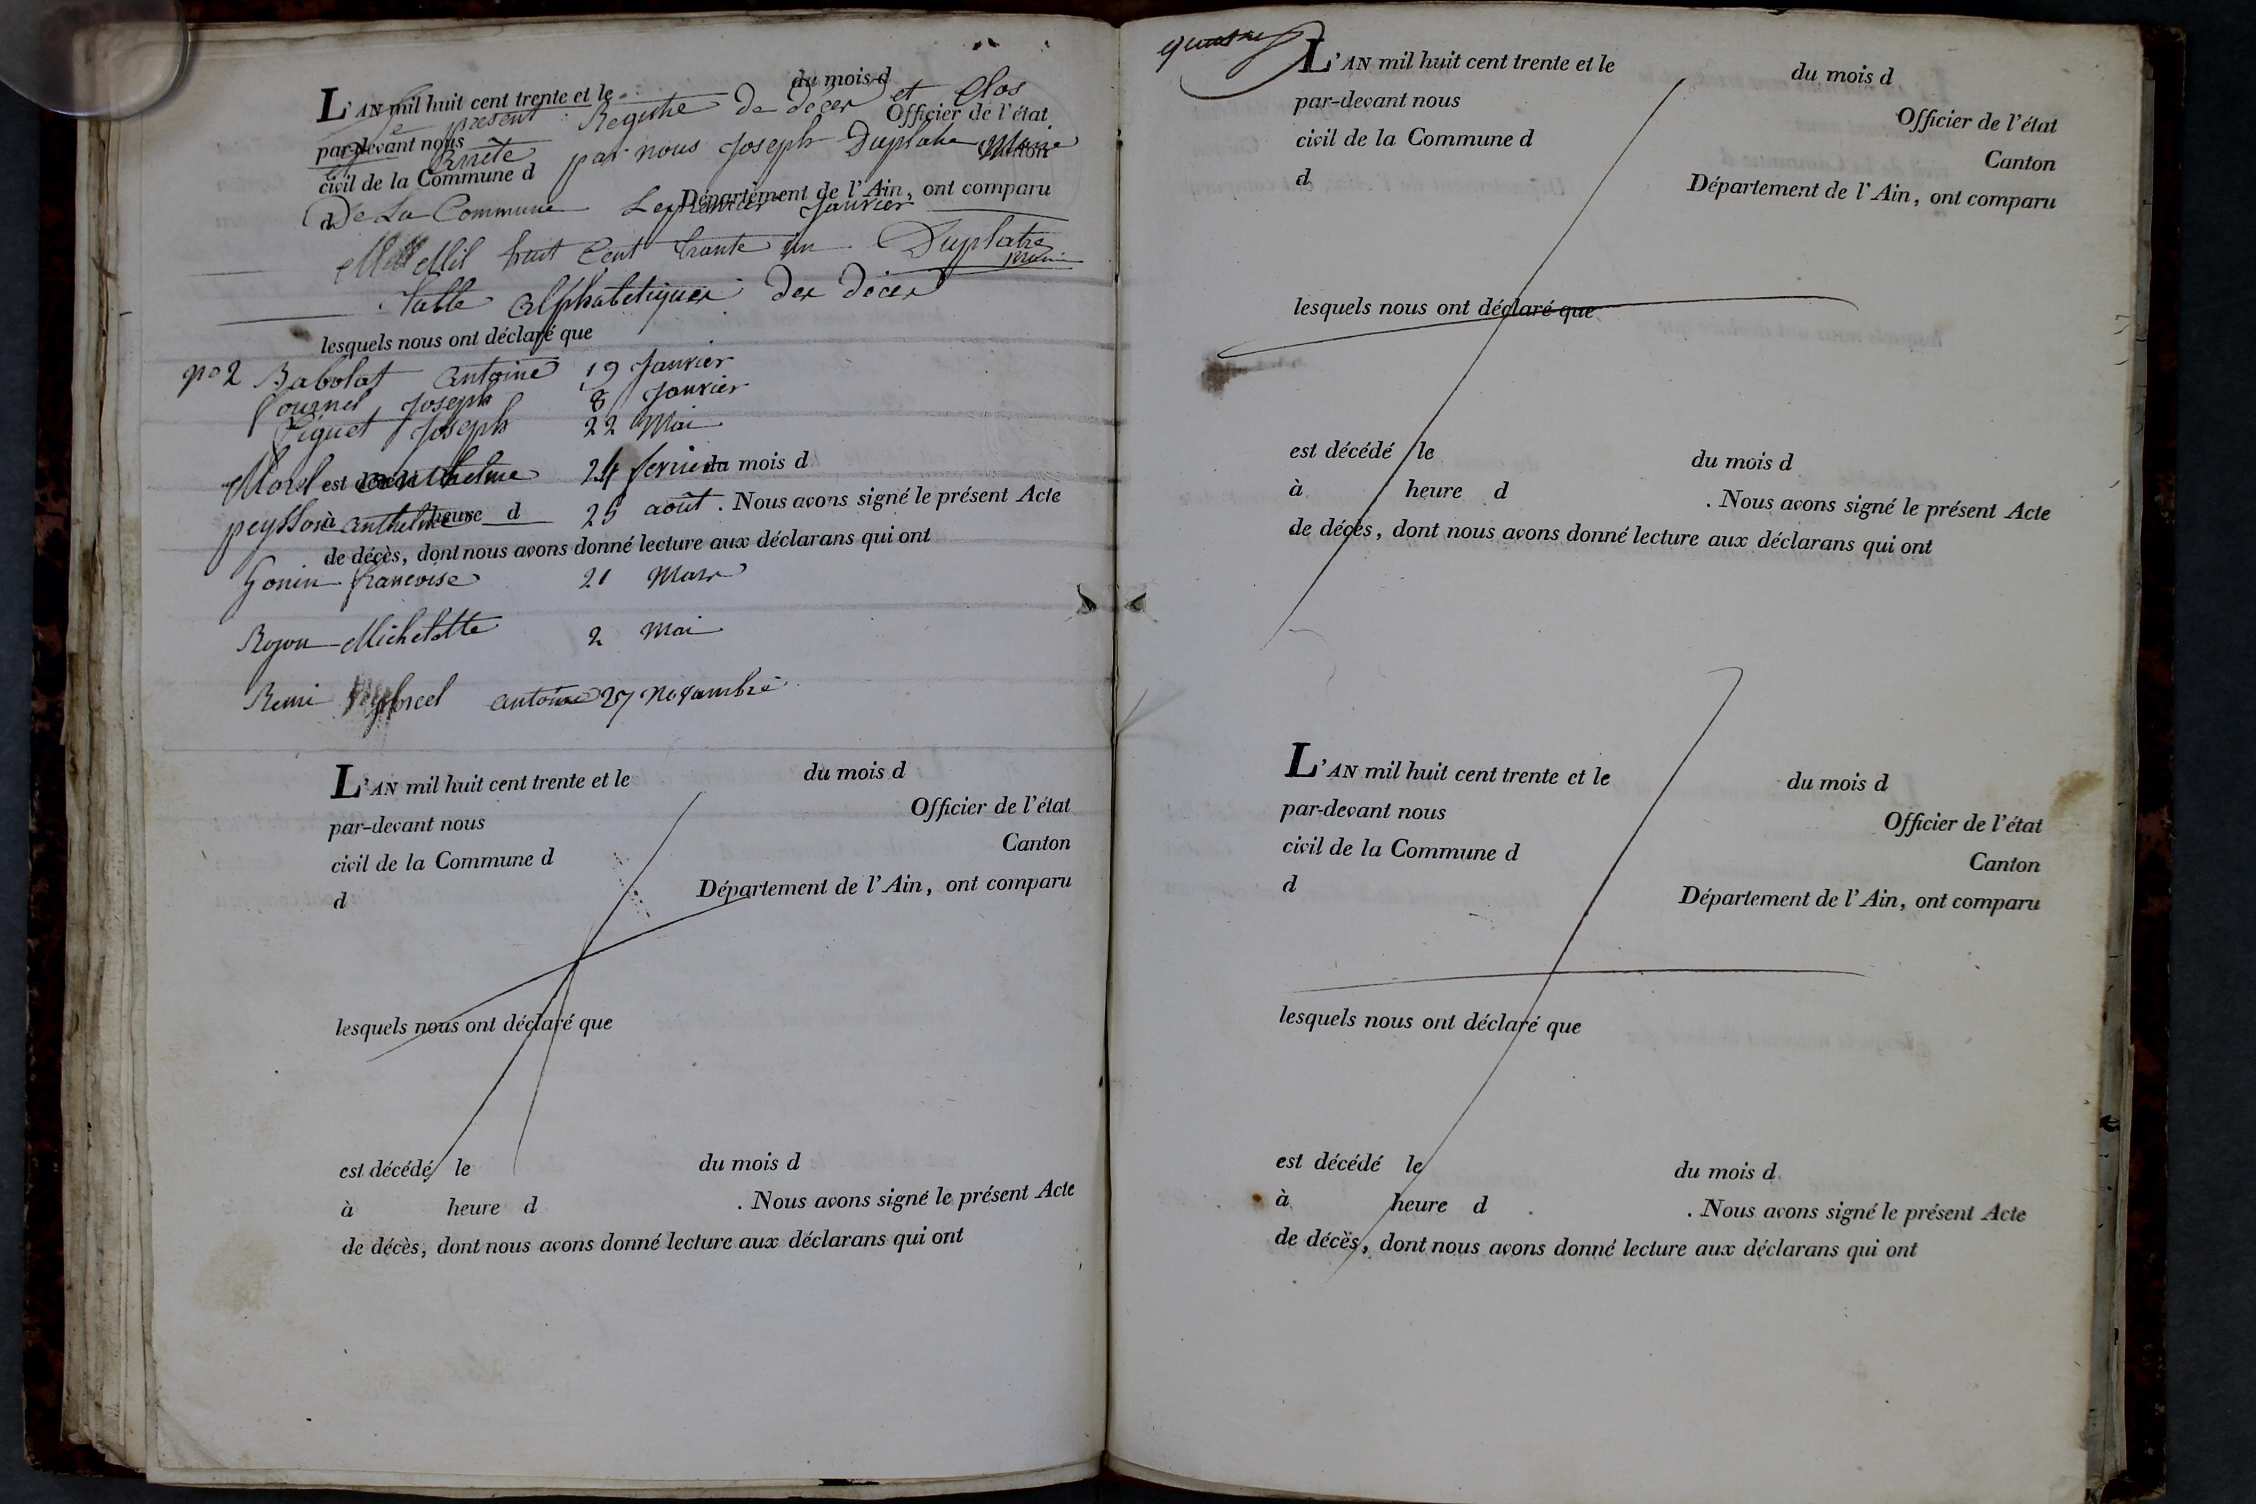 L'AN mil huit cent trente et le du mois d
Le present Registre de décer et Clos
Officier de l'état
par-devant nous
et arrêté par nous Joseph Duplatre Maire
Canton
civil de la Commune d
d Département de l'Ain, ont comparu
De La Commune Le premier Janvier
Mil huit Cent trante un Duplatre
maire
Table alphabetiques des décer
lesquels nous ont déclaré que
no 2 Babolat antoine 19 Janvier
Joseph 8 Janvier
Piguet Joseph 22 Mai
Morel anthelme 24 fevrier
est décédé du mois d
peysson anthelme 25 août
à heure d . Nous avons signé le présent Acte
de décès, dont nous avons donné lecture aux déclarans qui ont
Gonin francoise 21 Mars
Rojon Michelette 2 Mai
Remi antoine 27 Novambre
L'AN mil huit cent trente et le du mois d
par-devant nous Officier de l'état
civil de la Commune d Canton
d Département de l'Ain, ont comparu
lesquels nous ont déclaré que
est décédé le du mois d
à heure d . Nous avons signé le présent Acte
de décès, dont nous avons donné lecture aux déclarans qui ont
L'AN mil huit cent trente et le du mois d
par-devant nous Officier de l'état
civil de la Commune d Canton
d Département de l'Ain, ont comparu
lesquels nous ont déclaré que
est décédé le du mois d
à heure d . Nous avons signé le présent Acte
de décès, dont nous avons donné lecture aux déclarans qui ont
L'AN mil huit cent trente et le du mois d
par-devant nous Officier de l'état
civil de la Commune d Canton
d Département de l'Ain, ont comparu
lesquels nous ont déclaré que
est décédé le du mois d
à heure d . Nous avons signé le présent Acte
de décès, dont nous avons donné lecture aux déclarans qui ont